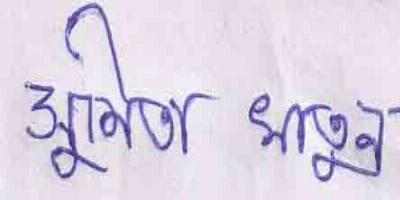 সুমিতা খাতুন